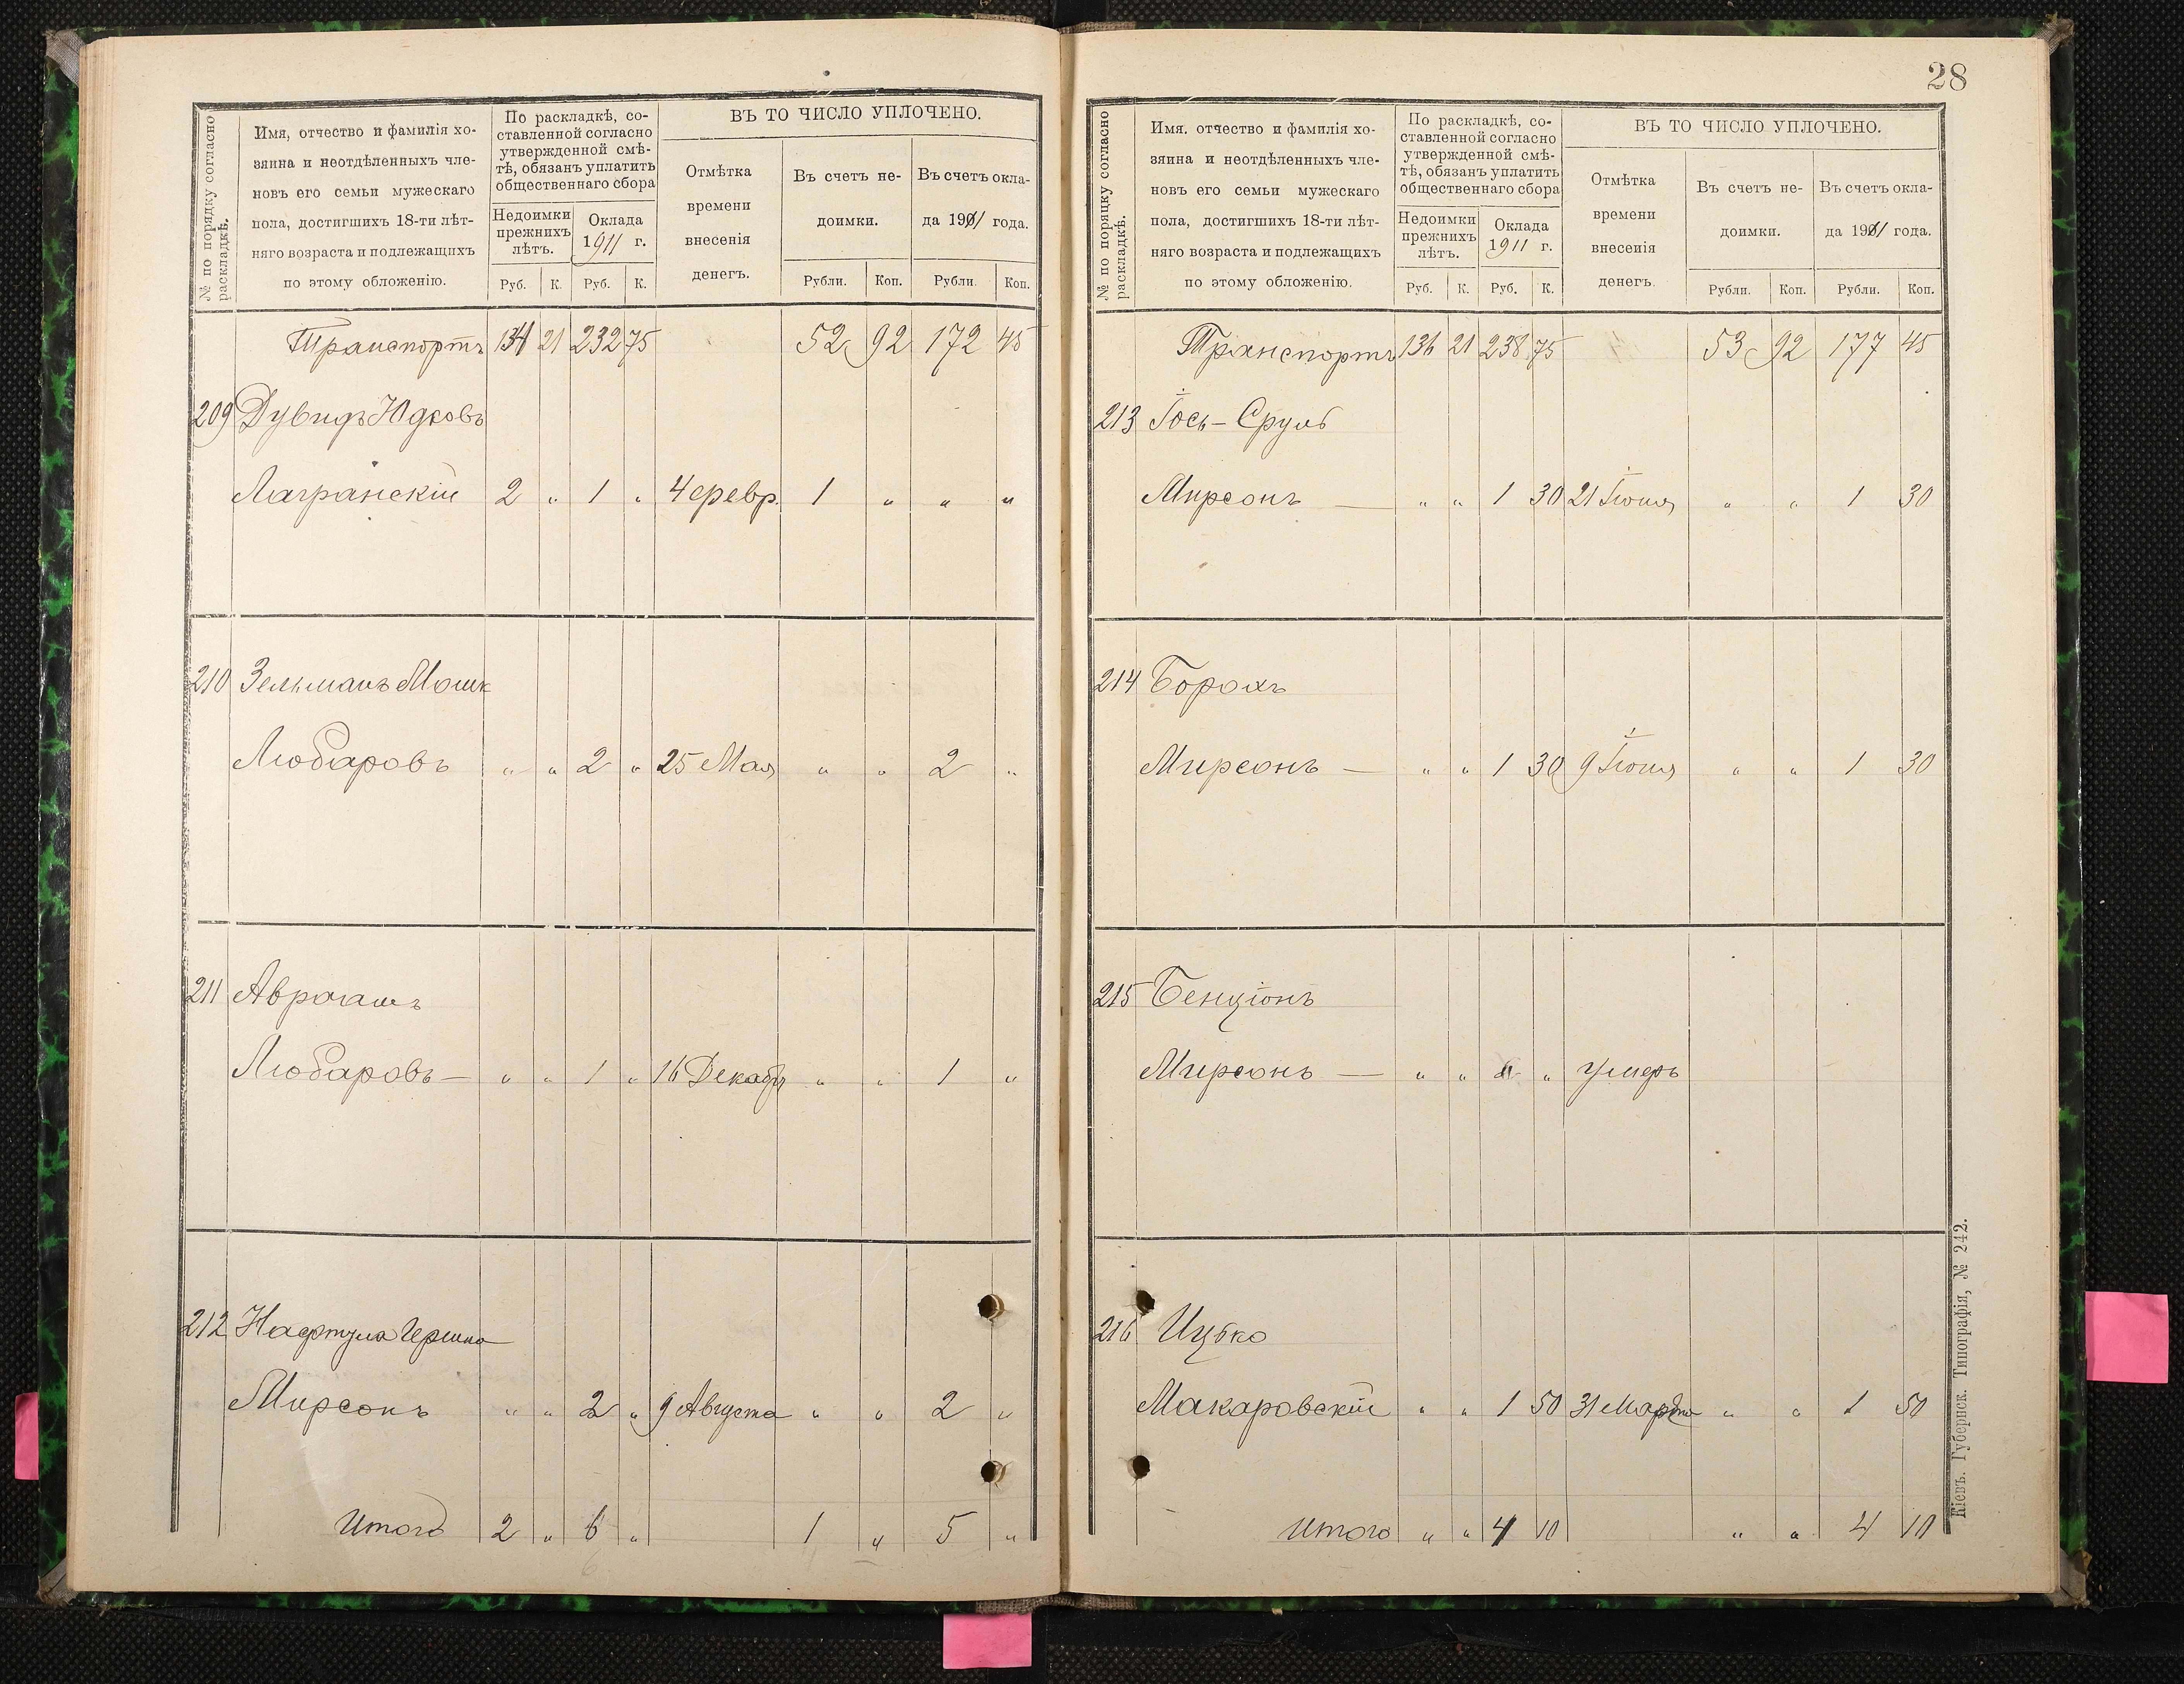 28
№ по порядку согласно раскладкѣ.
Имя, отчество и фамилія хо-
зяина и неотдѣленныхъ чле-
новъ его семьи мужескаго
пола, достигшихъ 18-ти лѣт-
няго возраста и подлежащихъ
по этому обложенію.
По раскладкѣ, со-
ставленной согласно
утвержденной смѣ-
тѣ, обязанъ уплатить
общественнаго сбора
Недоимки
прежнихъ
лѣтъ.
Оклада
1911 г.
Руб. К. Руб. К.
ВЪ ТО ЧИСЛО УПЛОЧЕНО.
Отмѣтка
времени
внесенія
денегъ.
Въ счетъ не-
доимки.
Въ счетъ окла-
да 1911 года.
Рубли. Коп. Рубли. Коп.
Транспортъ 134 21 232 75 52 92 172 45
209 Дувидъ Юдковъ
Лагранскій 2 " 1 " 4 февр. 1 " " "
210 Зельманъ Мошк
Любаровъ " " 2 " 25 Мая " " 2 "
211 Авраамъ
Любаровъ — " " 1 " 16 Декабр " " 1 "
212 Нафтула Гершко
Мирсонъ " " 2 " 9 Августа " " 2 "
Итого 2 " 6 " 1 " 5 "
№ по порядку согласно раскладкѣ.
Имя, отчество и фамилія хо-
зяина и неотдѣленныхъ чле-
новъ его семьи мужескаго
пола, достигшихъ 18-ти лѣт-
няго возраста и подлежащихъ
по этому обложенію.
По раскладкѣ, со-
ставленной согласно
утвержденной смѣ-
тѣ, обязанъ уплатить
общественнаго сбора
Недоимки
прежнихъ
лѣтъ.
Оклада
1911 г.
Руб. К. Руб. К.
ВЪ ТО ЧИСЛО УПЛОЧЕНО.
Отмѣтка
времени
внесенія
денегъ.
Въ счетъ не-
доимки.
Въ счетъ окла-
да 1911 года.
Рубли. Коп. Рубли. Коп.
Транспортъ 136 21 238 75 53 92 177 45
213 Іось-Сруль
Мирсонъ — " " 1 30 21 Іюня " " 1 30
214 Борохъ
Мирсонъ — " " 1 30 9 Іюня " " 1 30
215 Бенціонъ
Мирсонъ — " " " " умеръ
216 Ицько
Макаровскій " " 1 50 31 Марта " " 1 50
Итого " " 4 10 " " 4 10
Кіевъ. Губернск. Типографія, № 242.